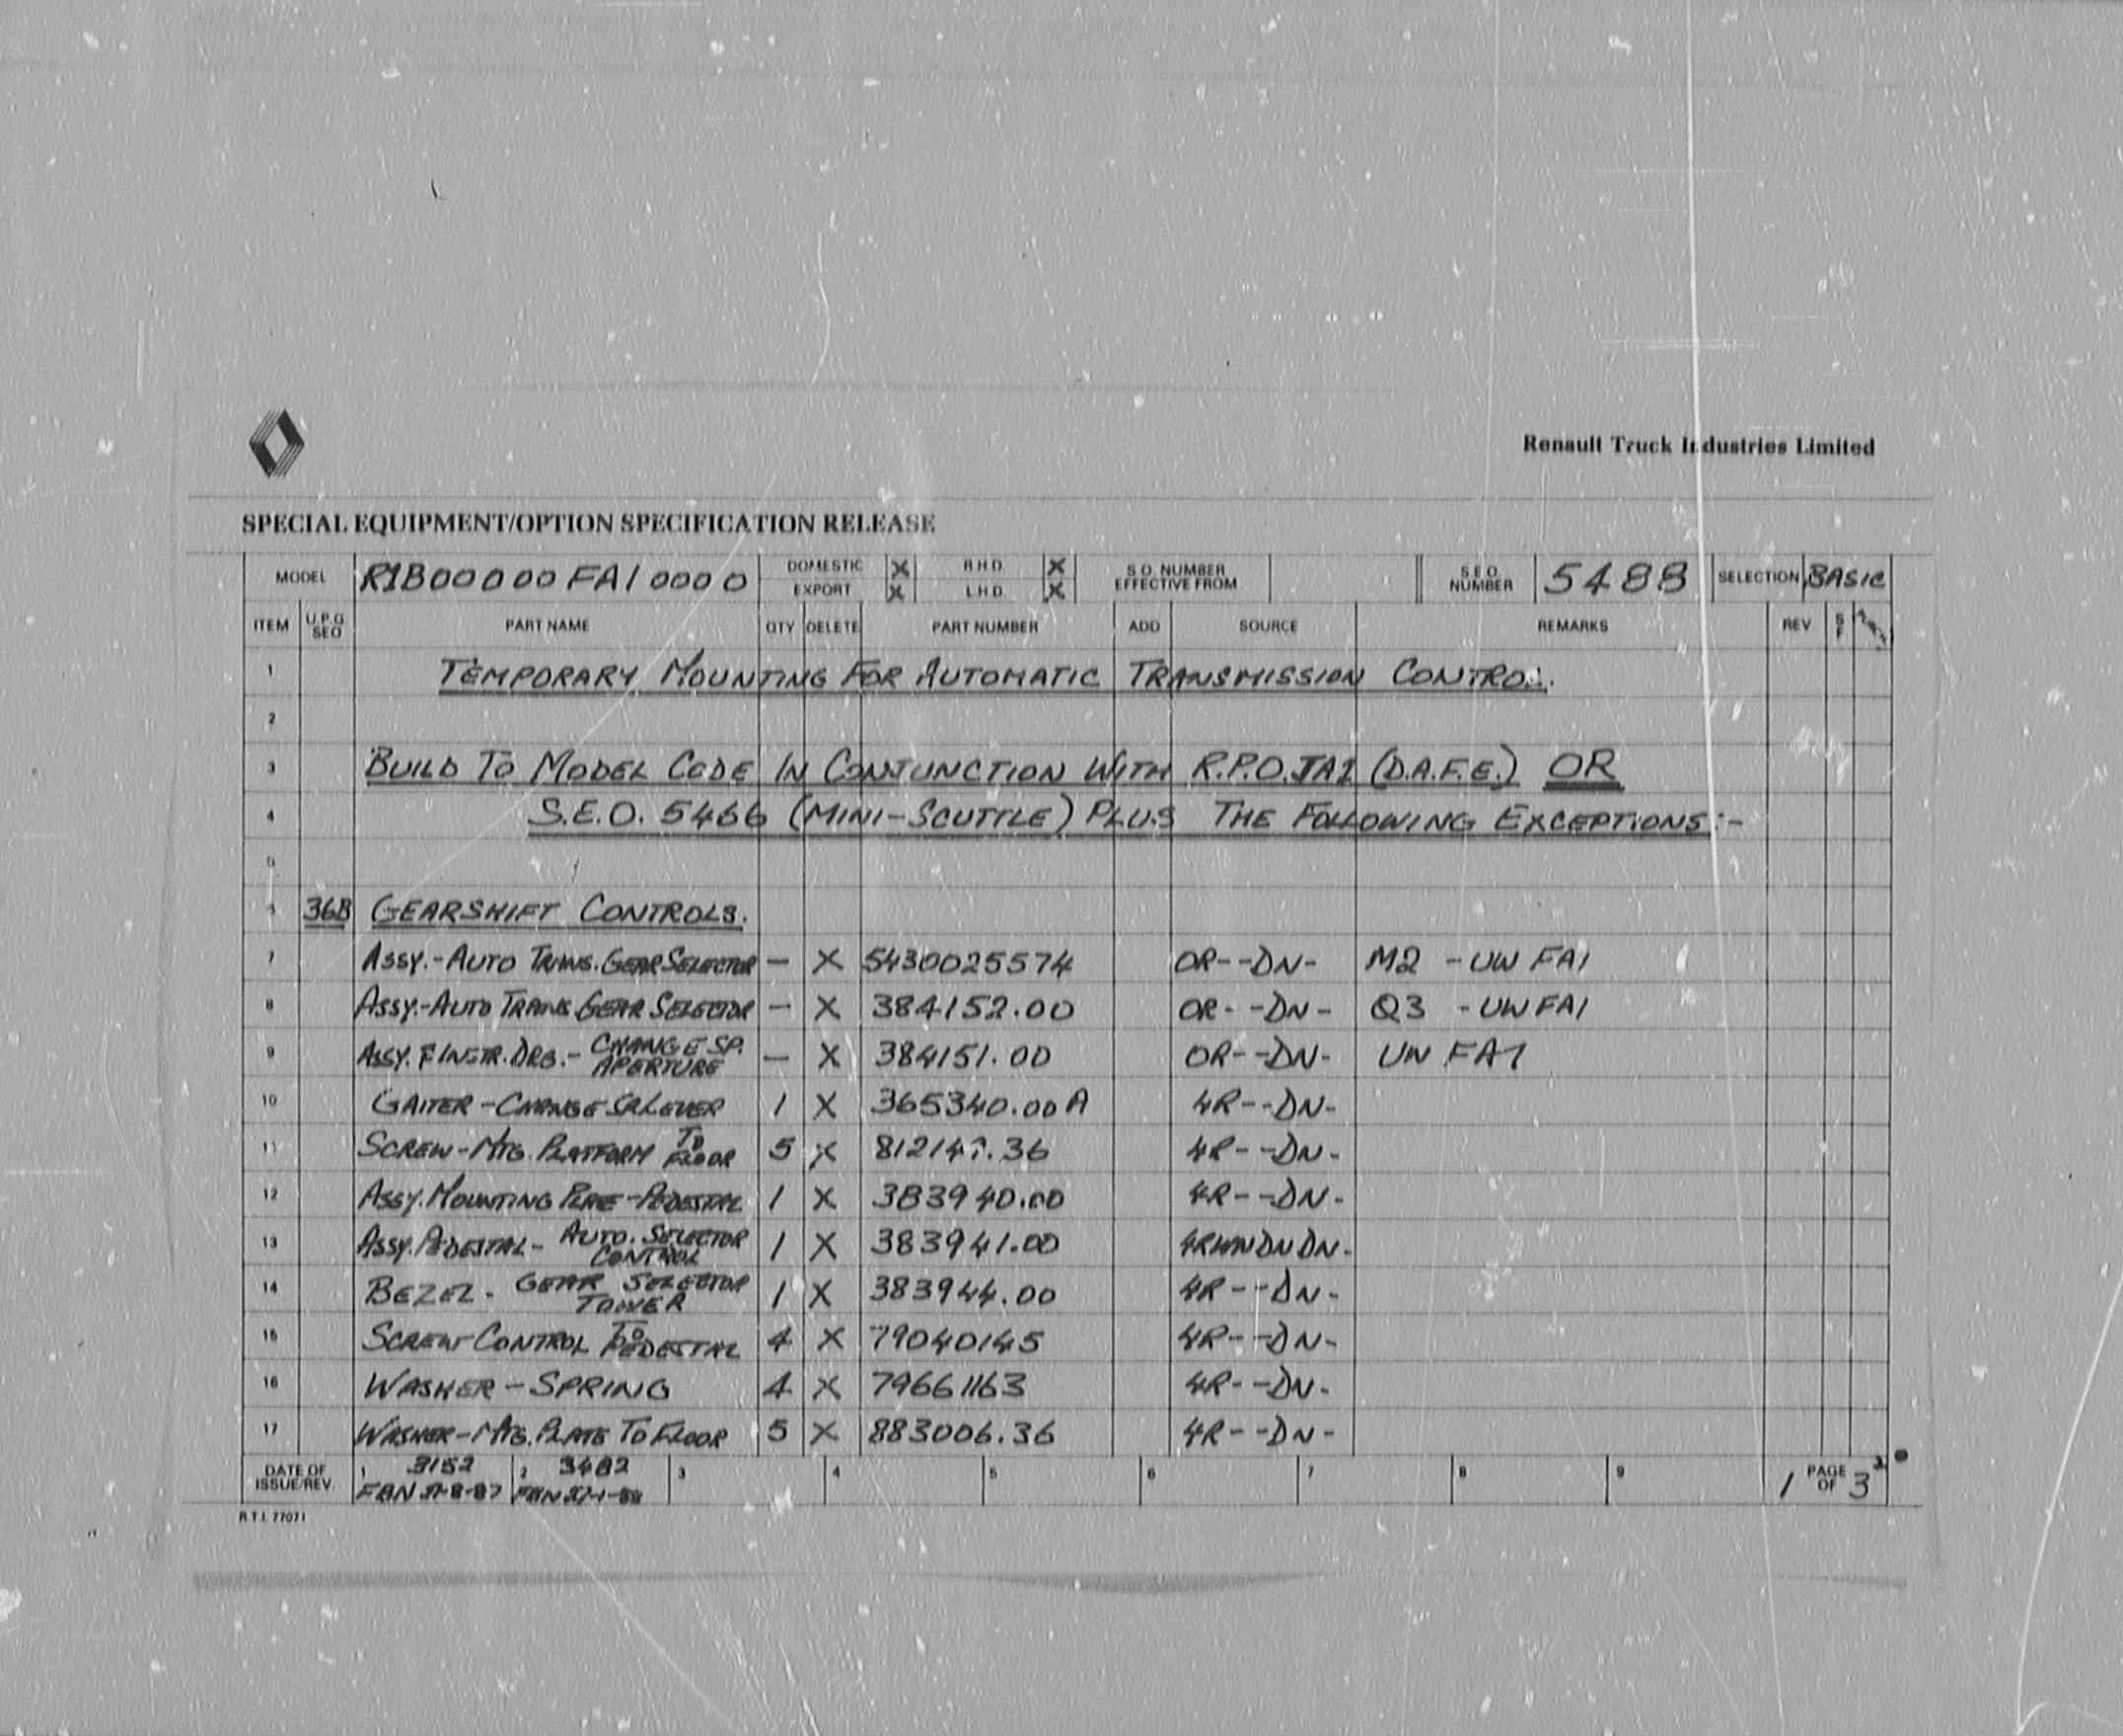 Renault Truck Industries Limited
SPECIAL EQUIPMENT/OPTION SPECIFICATION RELEASE
MODEL R1B00000FA10000 DOMESTIC X R.H.D. X S.O. NUMBER EFFECTIVE FROM S.E.O. NUMBER 5488 SELECTION BASIC
EXPORT X L.H.D. X
ITEM U.P.G. SEQ PART NAME QTY DELETE PART NUMBER ADD SOURCE REMARKS REV S F
1 TEMPORARY MOUNTING FOR AUTOMATIC TRANSMISSION CONTROL.
2
3 BUILD TO MODEL CODE IN CONJUNCTION WITH R.P.O. JA1 (D.A.F.E.) OR
4 S.E.O. 5466 (MINI-SCUTTLE) PLUS THE FOLLOWING EXCEPTIONS:-
36B GEARSHIFT CONTROLS.
7 ASSY.-AUTO TRANS. GEAR SELECTOR - X 5430025574 OR--DN- M2 -UW FA1
8 ASSY.-AUTO TRANS. GEAR SELECTOR - X 384152.00 OR--DN- Q3 -UW FA1
9 ASSY. F INSTR. DRG.- CHANGE SP. APERTURE - X 384151.00 OR--DN- UW FA1
10 GAITER-CHANGE SP. LEVER 1 X 365340.00A 4R--DN-
11 SCREW-MTG. PLATFORM TO FLOOR 5 X 4R--DN-
12 ASSY. MOUNTING PLATE-PEDESTAL 1 X 383940.00 4R--DN-
13 ASSY. PEDESTAL- AUTO. SELECTOR CONTROL 1 X 383941.00 4RWNDNDN-
14 BEZEL- GEAR SELECTOR TOWER 1 X 383944.00 4R--DN-
15 SCREW-CONTROL TO PEDESTAL 4 X 79040145 4R--DN-
16 WASHER-SPRING 4 X 79661163 4R--DN-
17 WASHER-MTG. PLATE TO FLOOR 5 X 883006.36 4R--DN-
DATE OF ISSUE/REV. 1 3152 2 3482 3 4 5 6 7 8 9 1 PAGE OF 3
R.T.I. 77071